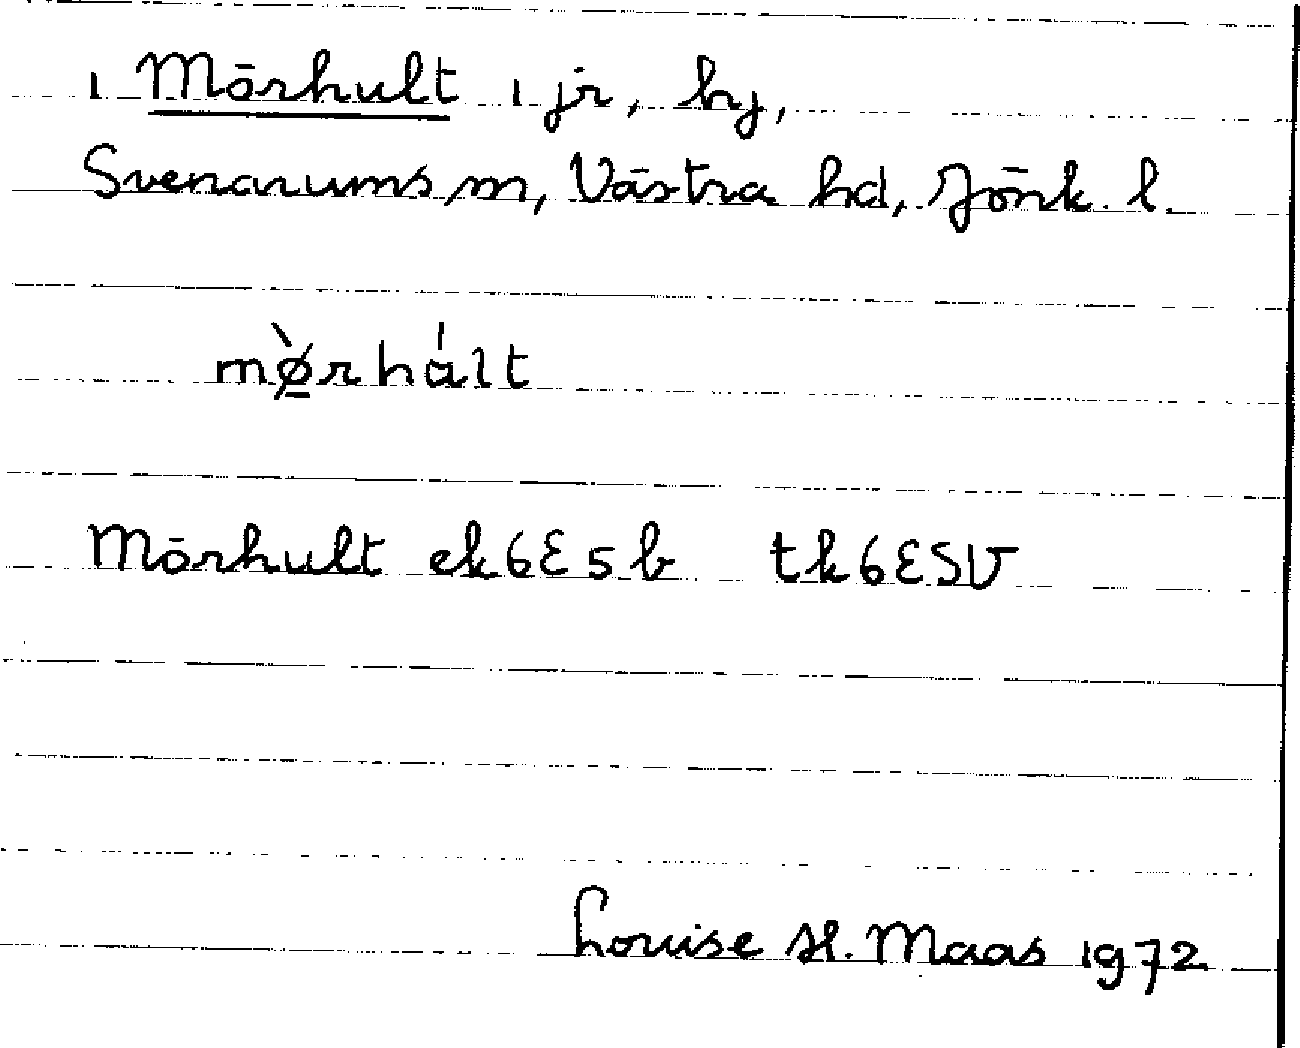 1 Mörhult 1 jr, by,
Svenarums sn, Västra hd, Jönk. l.
mø̱̀rhált
Mörhult ek6E5b tk6E5V
Louise H. Maas 1972